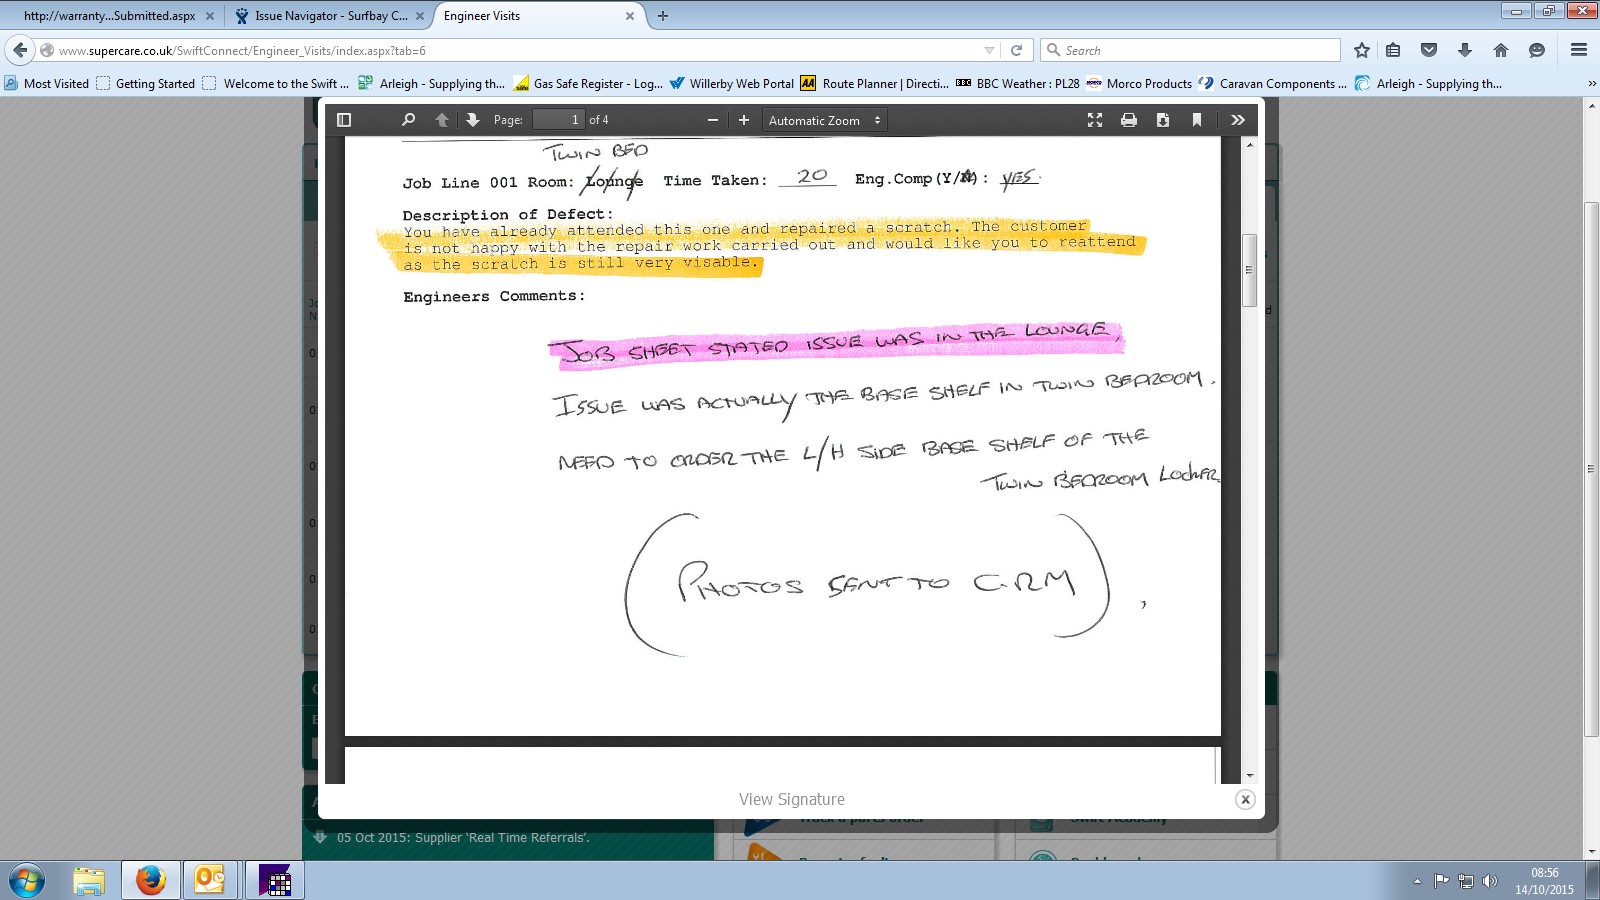 http://warranty...Submitted.aspx
Issue Navigator - Surfbay C...
Engineer Visits
www.supercare.co.uk/SwiftConnect/Engineer_Visits/index.aspx?tab=6
Search
Most Visited Getting Started Welcome to the Swift ... Arleigh - Supplying th... Gas Safe Register - Log... Willerby Web Portal AA Route Planner | Directi... BBC BBC Weather : PL28 Morco Products Caravan Components ... Arleigh - Supplying th...
Page: 1 of 4 Automatic Zoom
TWIN BED
Job Line 001 Room: Lounge Time Taken: 20 Eng.Comp(Y/N): YES.
Description of Defect:
You have already attended this one and repaired a scratch. The customer
is not happy with the repair work carried out and would like you to reattend
as the scratch is still very visable.
Engineers Comments:
JOB SHEET STATED ISSUE WAS IN THE LOUNGE,
ISSUE WAS ACTUALLY THE BASE SHELF IN TWIN BEDROOM.
NEED TO ORDER THE L/H SIDE BASE SHELF OF THE
TWIN BEDROOM LOCKER.
(PHOTOS SENT TO C.R.M),
View Signature
05 Oct 2015: Supplier 'Real Time Referrals'.
08:56
14/10/2015